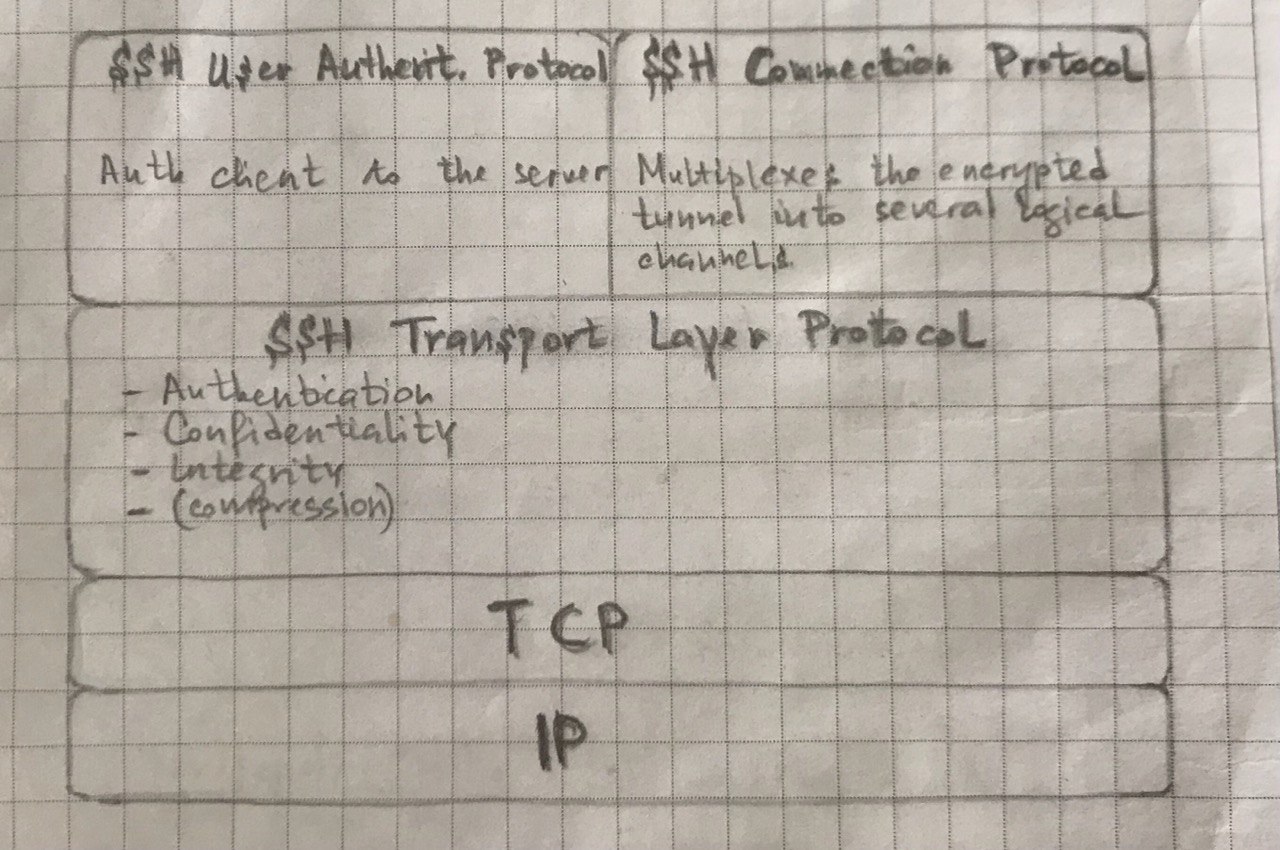 SSH User Authent. Protocol
Auth client to the server
SSH Connection Protocol
Multiplexes the encrypted
tunnel into several logical
channels.
SSH Transport Layer Protocol
- Authentication
- Confidentiality
- Integrity
- (compression)
TCP
IP